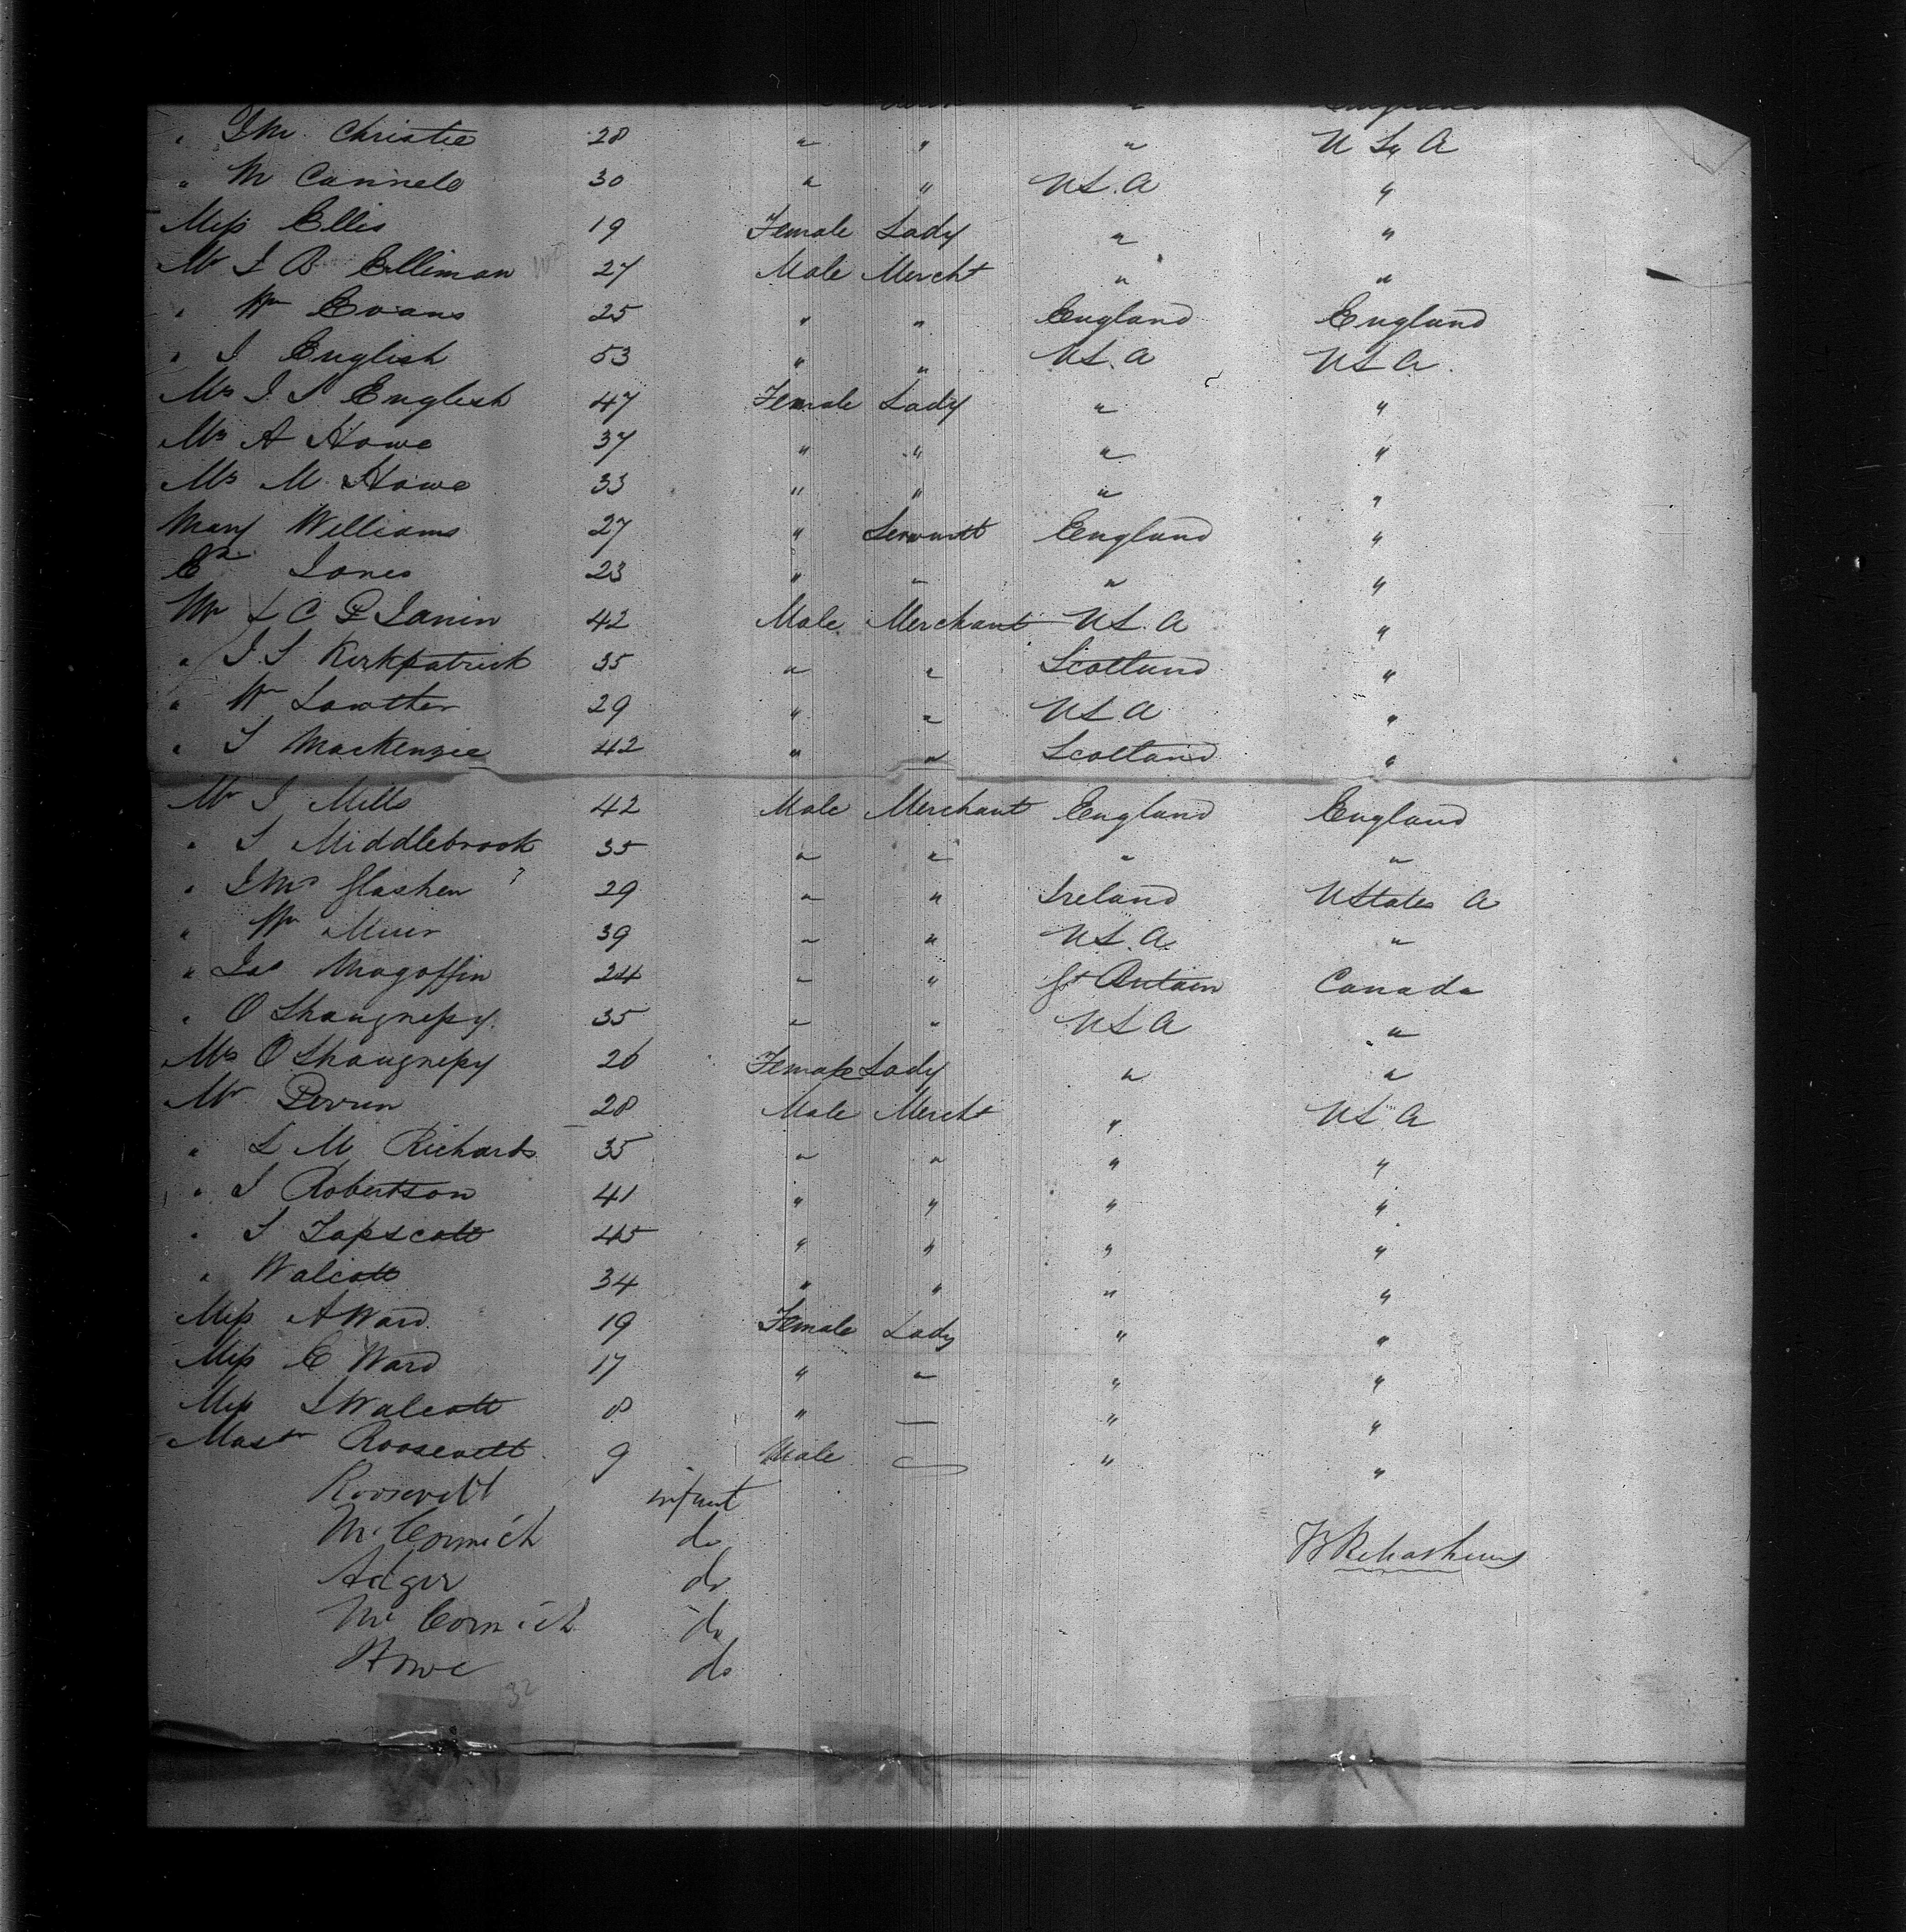 " Christie 28 " " " U S A
" M Cannele 30 " " U S. A "
Miss Ellis 19 Female Lady " "
Mr I B Elliman 27 Male Mercht " "
" Wm Evans 25 " " England England
" I English 53 " " U S. A U S A.
Mrs I S English 47 Female Lady " "
Mrs A Howe 37 " " " "
Ms M. Howe 33 " " " "
Mary Williams 27 " Servantt England "
Jones 23 " " " "
Mr L C P Janin 42 Male Merchant U S. A "
" J. S Kirkpatrick 35 " " Scotland "
" Wm Lowther 29 " " U S A "
" S Mackenzie 42 " " Scotland "
Mr I Mills 42 Male Merchant England England
" S Middlebrook 35 " " " "
" 29 " " Ireland U States A
" Wm Muir 39 " " U S. A. "
" Jas Magoffin 24 " " Gt Britain Canada
" O Shaugnessy. 35 " " U S A "
Mrs O Shaugnessy 26 Female Lady " "
Mr Perrin 28 Male Mercht " U S A
" L M Richards 35 " " " "
" I Robertson 41 " " " "
" S Tapscott 45 " " " "
" Walcott 34 " " " "
Miss A Ward. 19 Female Lady " "
Miss C Ward 17 " " " "
Miss S Walcott 8 " — " "
Mastr Roosevelt. 9 Male — " "
Roosevelt infant
McCormick do
Adger do
McCormick do
Howe do
32